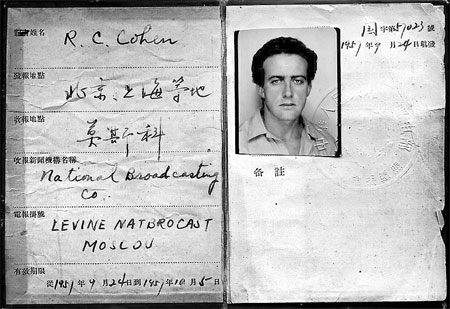 姓名 R. C. Cohen
發報地點
北京、上海等地
收報地點
莫斯科
收報新聞機構名稱
National Broadcasting
Co.
電報掛號
LEVINE NATBROCAST
MOSCOU
有效期限
從1957年9月24日到1957年10月5日
字第57023號
1957年9月24日填發
备註